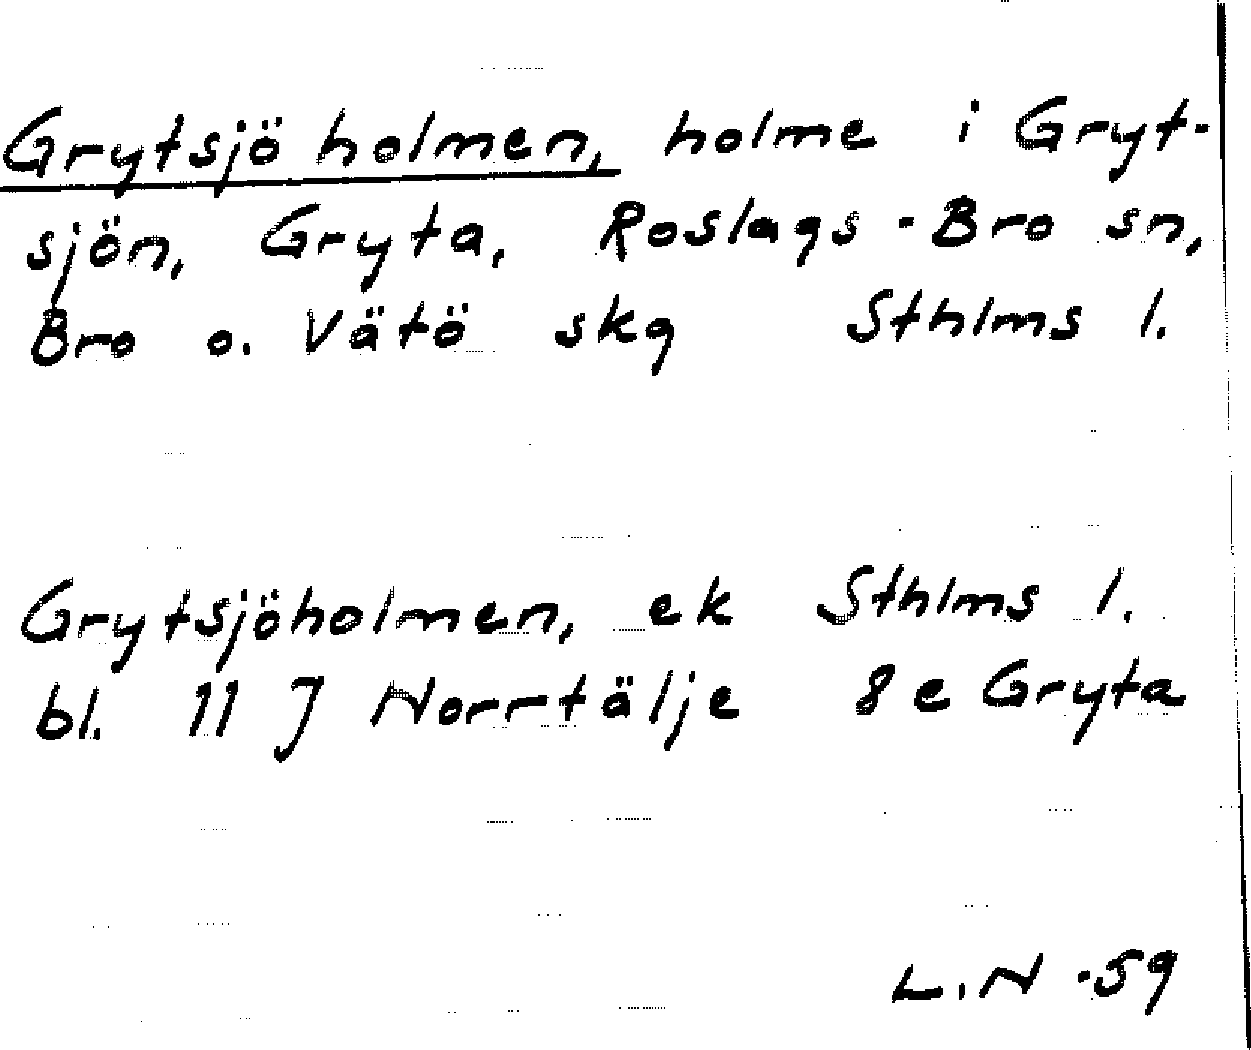 Grytsjöholmen, holme i Gryt-
sjön, Gryta, Roslags-Bro sn,
Bro o. Vätö skg Sthlms l.
Grytsjöholmen, ek Sthlms l.
bl. 11 J Norrtälje 8 e Gryta
L.N -59